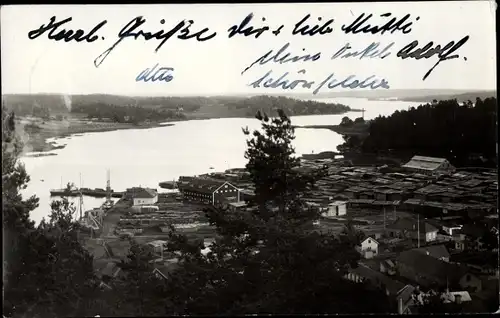 Herzl. Grüße dir & lieb Mutti
dein Onkel Adolf.
Otto Schönfelder